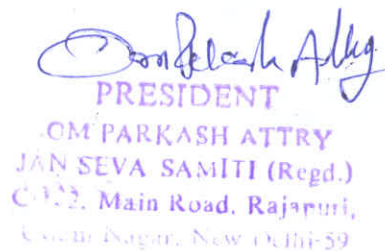 Om Parkash Attry
PRESIDENT
OM PARKASH ATTRY
JAN SEVA SAMITI (Regd.)
Main Road, Rajapuri,
Nagar, New Delhi-59